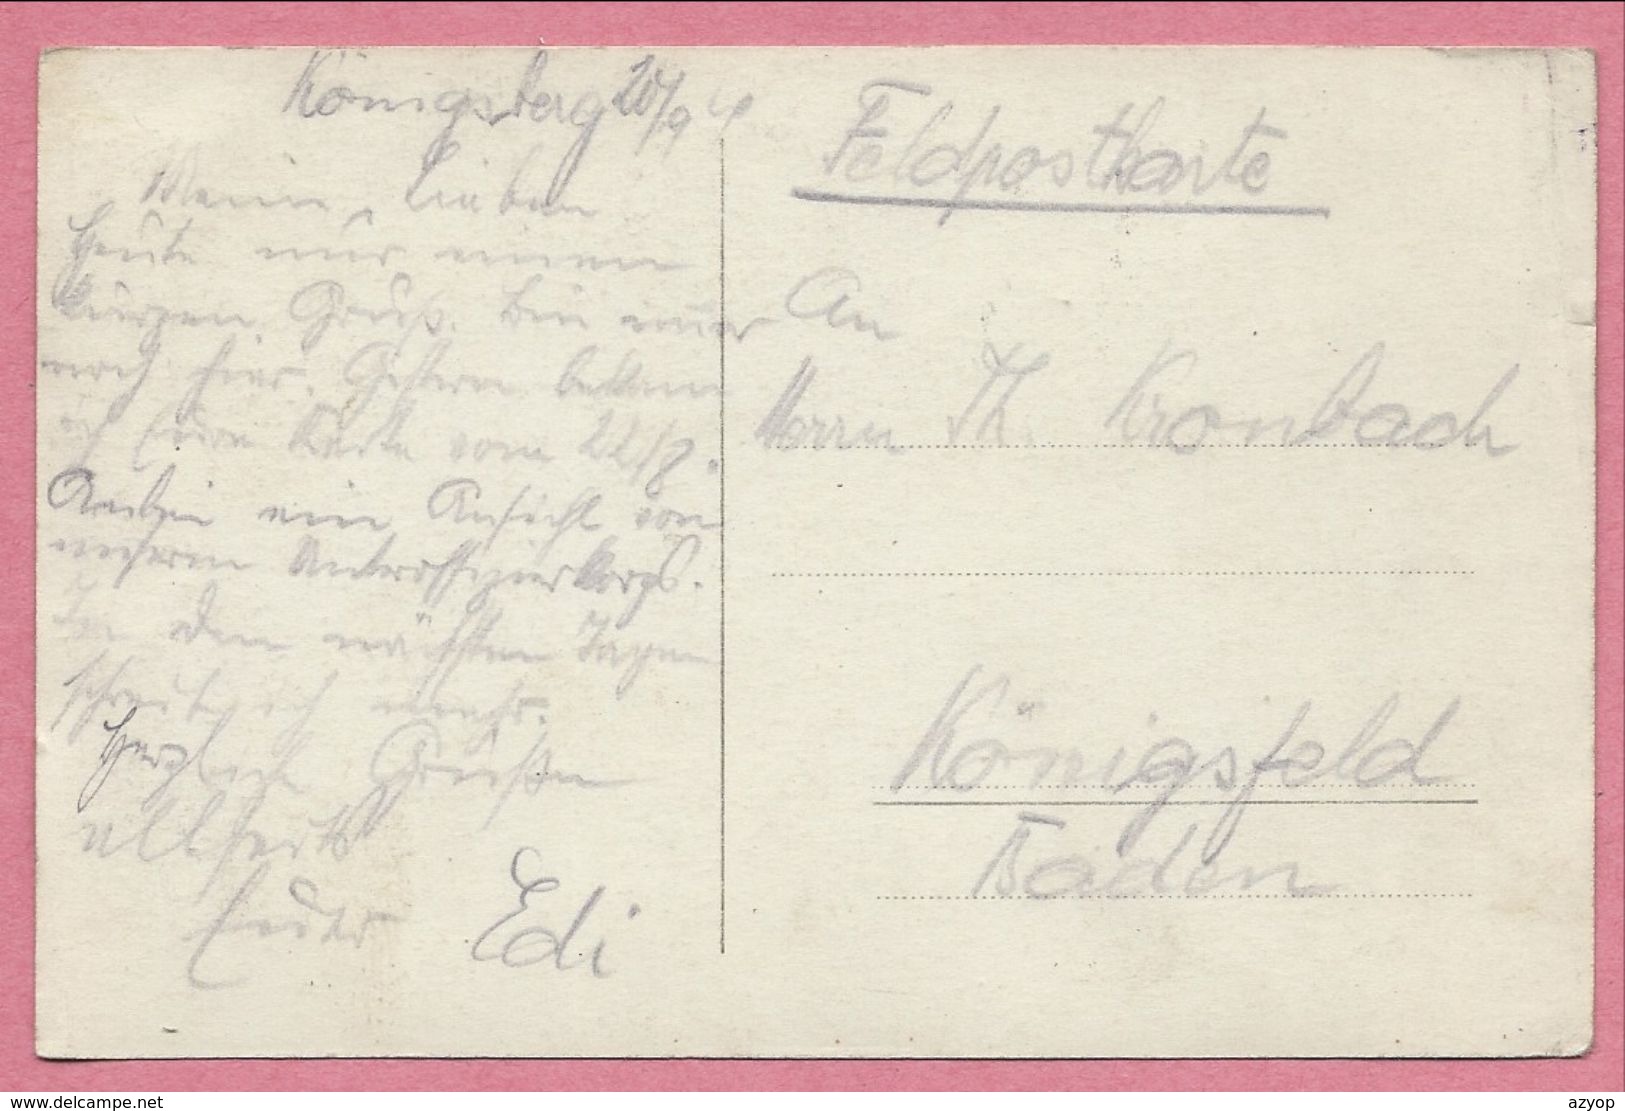 Königsberg 20/9
Meine Lieben
Heute nur einen
kurzen Gruß. Bin immer
noch hier. Gestern bekam
ich Eure Karte vom 22/8.
Anbei eine Ansicht von
unserem Unteroffizierkorps.
In den nächsten Tagen
schreibe ich mehr.
Herzliche Grüße
allseits
Euer Edi
Feldpostkarte
An
Herrn Th. Kronbach
Königsfeld
Baden
www.delcampe.net
azyop